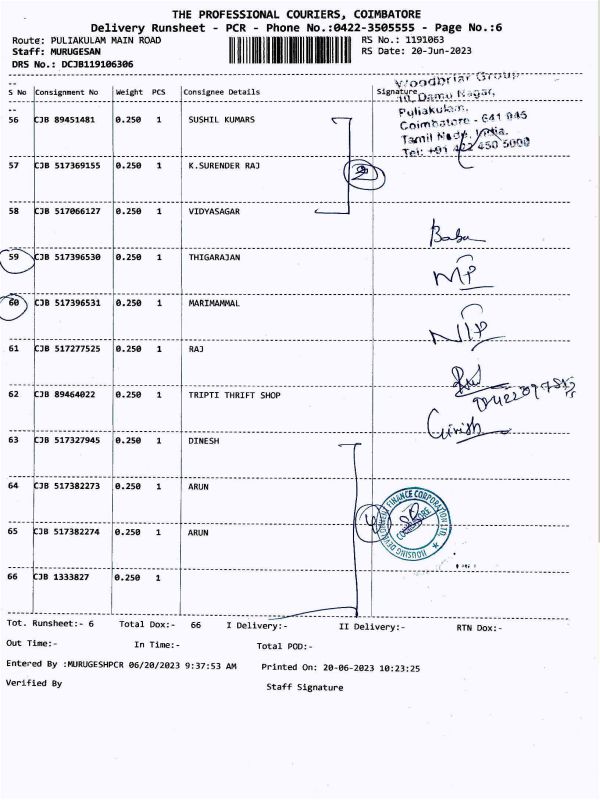 THE PROFESSIONAL COURIERS, COIMBATORE
Delivery Runsheet - PCR - Phone No.:0422-3505555 - Page No.:6
Route: PULIAKULAM MAIN ROAD RS No.: 1191063
Staff: MURUGESAN RS Date: 20-Jun-2023
DRS No.: DCJB119106306
S No Consignment No Weight PCS Consignee Details Signature
Woodbriar Group
10, Damu Nagar,
Puliakulam,
Coimbatore - 641 045
Tamil Nadu, India.
Tel: +91 422 450 5000
56 CJB 89451481 0.250 1 SUSHIL KUMARS
57 CJB 517369155 0.250 1 K.SURENDER RAJ
58 CJB 517066127 0.250 1 VIDYASAGAR
Babu
59 CJB 517396530 0.250 1 THIGARAJAN
60 CJB 517396531 0.250 1 MARIMAMMAL
61 CJB 517277525 0.250 1 RAJ
62 CJB 89464022 0.250 1 TRIPTI THRIFT SHOP
Girish
63 CJB 517327945 0.250 1 DINESH
64 CJB 517382273 0.250 1 ARUN
HOUSING DEVELOPMENT FINANCE CORPORATION LTD.
65 CJB 517382274 0.250 1 ARUN
66 CJB 1333827 0.250 1
Tot. Runsheet:- 6 Total Dox:- 66 I Delivery:- II Delivery:- RTN Dox:-
Out Time:- In Time:- Total POD:-
Entered By :MURUGESHPCR 06/20/2023 9:37:53 AM Printed On: 20-06-2023 10:23:25
Verified By Staff Signature